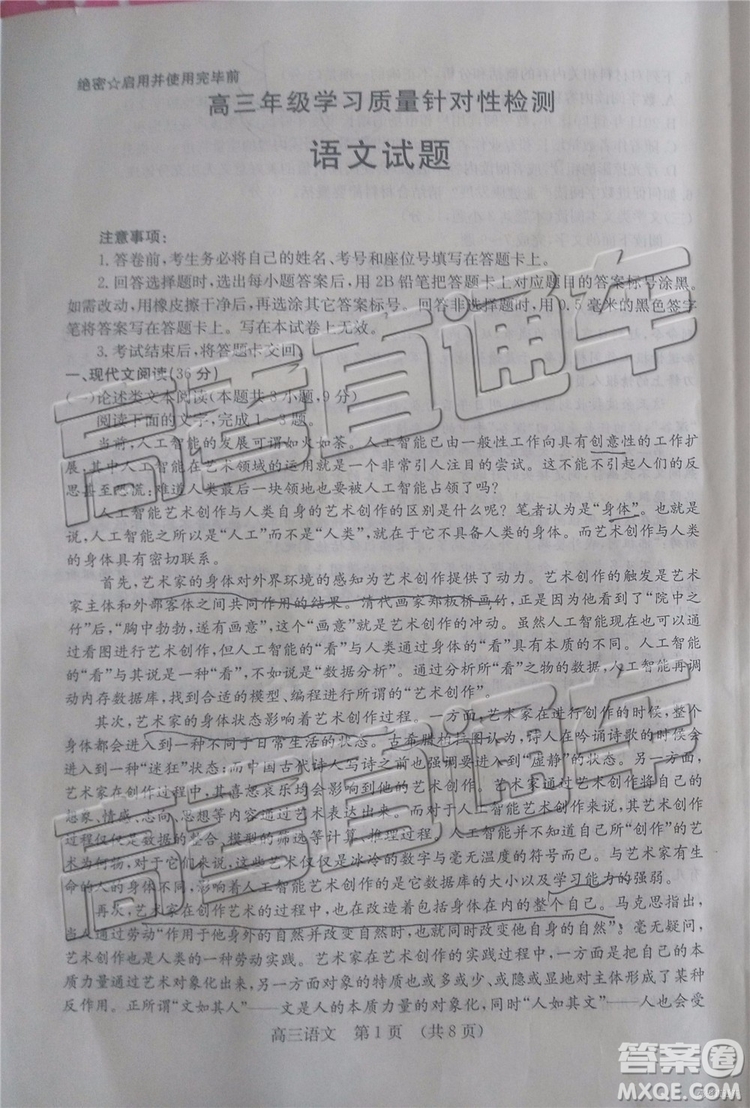 绝密☆启用并使用完毕前
高三年级学习质量针对性检测
语文试题
注意事项：
1.答卷前，考生务必将自己的姓名、考号和座位号填写在答题卡上。
2.回答选择题时，选出每小题答案后，用2B铅笔把答题卡上对应题目的答案标号涂黑。
如需改动，用橡皮擦干净后，再选涂其它答案标号。回答非选择题时，用0.5毫米的黑色签字
笔将答案写在答题卡上。写在本试卷上无效。
3.考试结束后，将答题卡交回。
一、现代文阅读(36分)
(一)论述类文本阅读(本题共3小题，9分)
阅读下面的文字，完成1~3题。
当前，人工智能的发展可谓如火如荼。人工智能已由一般性工作向具有创意性的工作扩
展，其中，人工智能在艺术领域的运用就是一个非常引人注目的尝试。这不能不引起人们的反
思甚至恐慌：难道人类最后一块领地也要被人工智能占领了吗？
人工智能艺术创作与人类自身的艺术创作的区别是什么呢？笔者认为是“身体”。也就是
说，人工智能之所以是“人工”而不是“人类”，就在于它不具备人类的身体。而艺术创作与人类
的身体具有密切联系。
首先，艺术家的身体对外界环境的感知为艺术创作提供了动力。艺术创作的触发是艺术
家主体和外部客体之间共同作用的结果。清代画家郑板桥画竹，正是因为看到了“院中之
竹”，“胸中勃勃，遂有画意”，这个“画意”就是艺术创作的冲动。虽然人工智能艺术创作也可以
通过看图进行艺术创作，但人工智能的“看”与人类通过身体的“看”具有本质的不同。人工智能
的“看”与其说是一种“看”，不如说是“数据分析”。通过分析所“看”之物的数据，人工智能再调
动内存数据库，找到合适的模型、编程进行所谓的“艺术创作”。
其次，艺术家的身体状态影响着艺术创作过程。一方面，艺术家在进行创作的时候，整个
身体都会进入到一种不同于日常生活的状态。古希腊柏拉图认为，诗人在吟诵诗歌的时候会
进入到一种“迷狂”状态；而中国古代诗人写诗之前则要进入到“虚静”的状态。另一方面，艺
术家在创作过程中，其喜怒哀乐均会通过艺术表达出来。而对于人工智能艺术创作来说，其想
象、情感、志向、思想等内容都与身体无关，人工智能艺术创作也不会有情感的抒发，其艺术创作
过程仅仅是数据的整合、模型的筛选等计算、推理过程，人工智能甚至不知道它所“创作”的艺
术为何物，对于它们来说，这些“作品”仅仅是冰冷的数字与毫无温度的符号而已。与艺术家本
人的身体不同，影响着人工智能艺术创作的是它数据库的大小以及学习能力的强弱。
再次，艺术家在创作艺术的过程中，也在改造着包括身体在内的整个自己。马克思指出，
当人通过劳动“作用于他身外的自然并改变自然时，也就同时改变他自身的自然”。毫无疑问，
艺术创作是人类的一种劳动实践。艺术家在对艺术创作的实践过程中，一方面是把自己的本
质力量通过艺术对象化出来，另一方面对象的特质也或多或少、或隐或显地对主体形成了某种
反作用。正所谓“文如其人”——文是人的本质力量的对象化，同时“人如其文”——人也会受
高三语文 第1页 (共8页)
高考直通车
高考直通车
答案圈
MXQE.COM